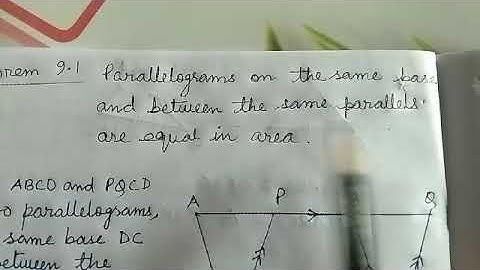 rem 9.1 Parallelograms on the same base
and between the same parallels
are equal in area.
ABCD and PQCD
o parallelograms,
same base DC
between the
A P Q